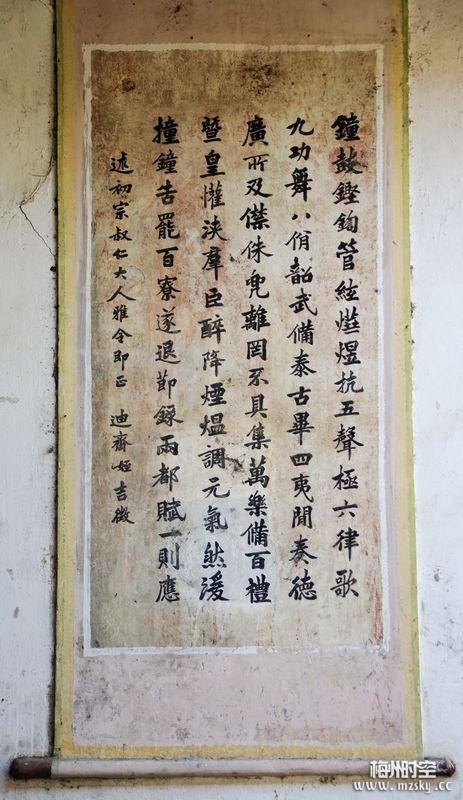 鐘鼓鏗鍧管絃燁煜抗五聲極六律歌
九功舞八佾韶武備泰古畢四夷間奏德
廣所及僸佅兜離罔不具集萬樂備百禮
暨皇懽浹羣臣醉降煙熅調元氣然後
撞鐘告罷百寮遂退節錄兩都賦一則應
述初宗叔仁大人雅令即正 迪齋姪吉徵
梅州时空
www.mzsky.cc